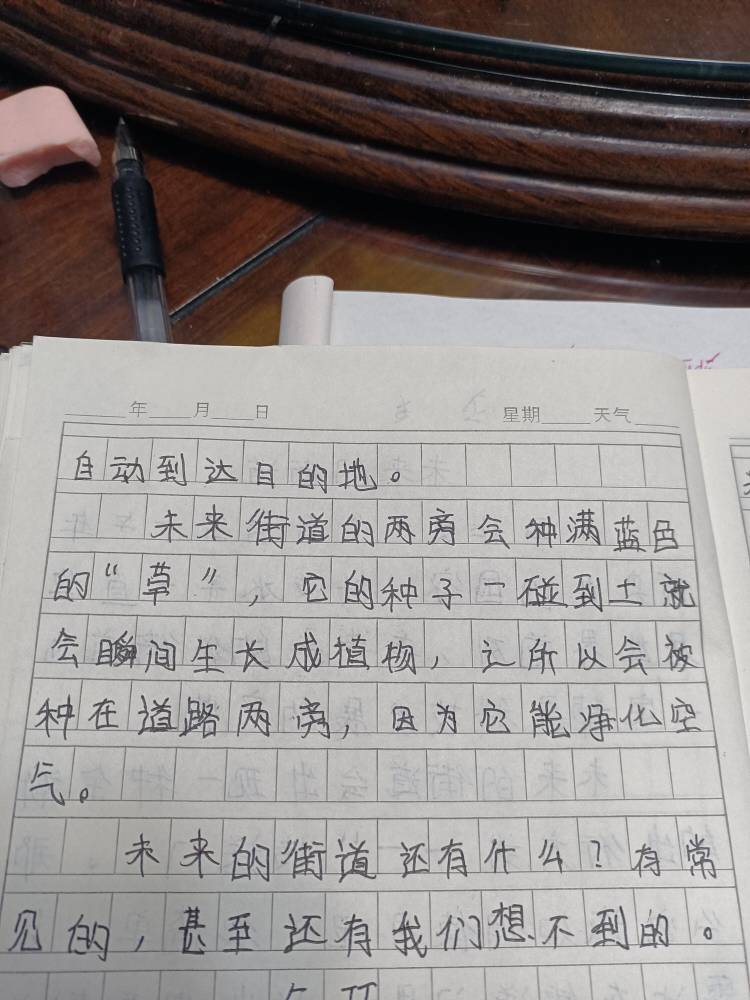 年 月 日 星期 天气
自动到达目的地。
未来街道的两旁会种满蓝色
的“草”,它的种子一碰到土就
会瞬间生长成植物,之所以会被
种在道路两旁,因为它能净化空
气。
未来的街道还有什么?有常
见的,甚至还有我们想不到的。